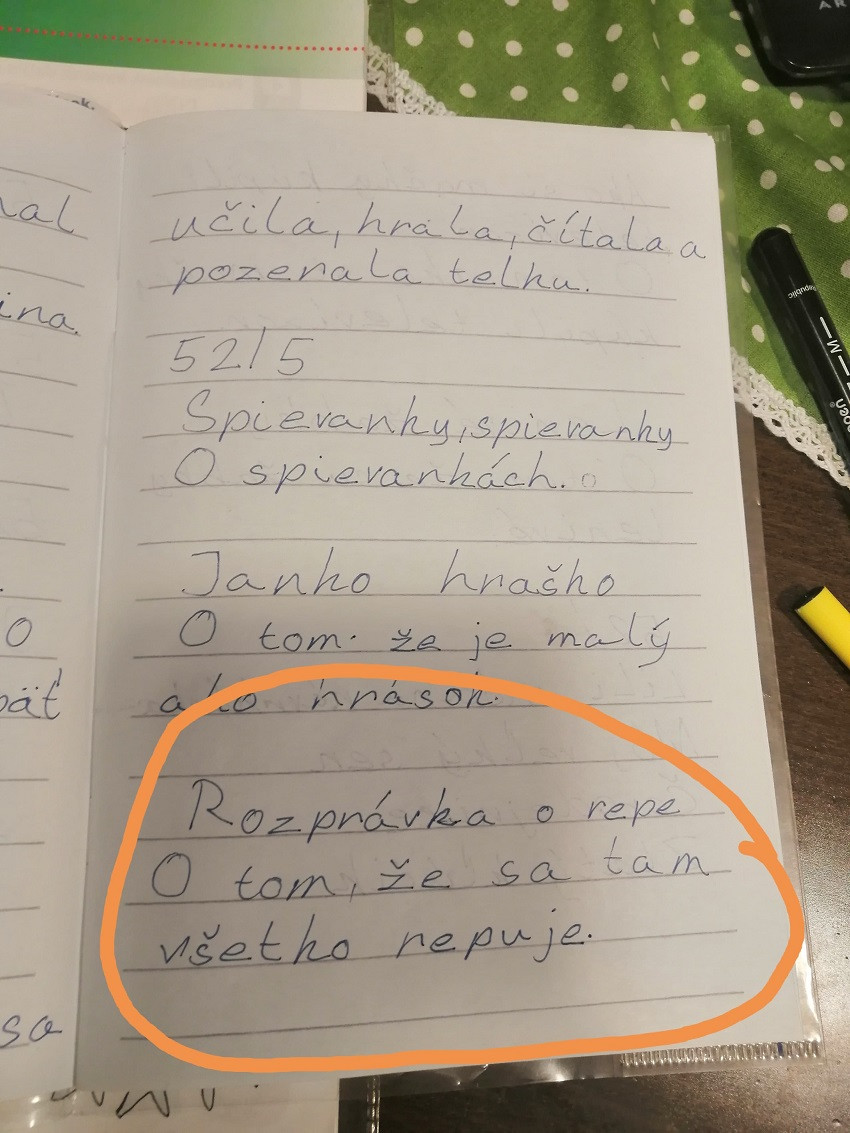 učila, hrala, čítala a
pozerala telku.
52/5
Spievanky, spievanky
O spievankách.
Janko hraško
O tom. že je malý
ako hrášok.
Rozprávka o repe
O tom, že sa tam
všetko repuje.
ina.
O
päť
so
Republic
M
AR